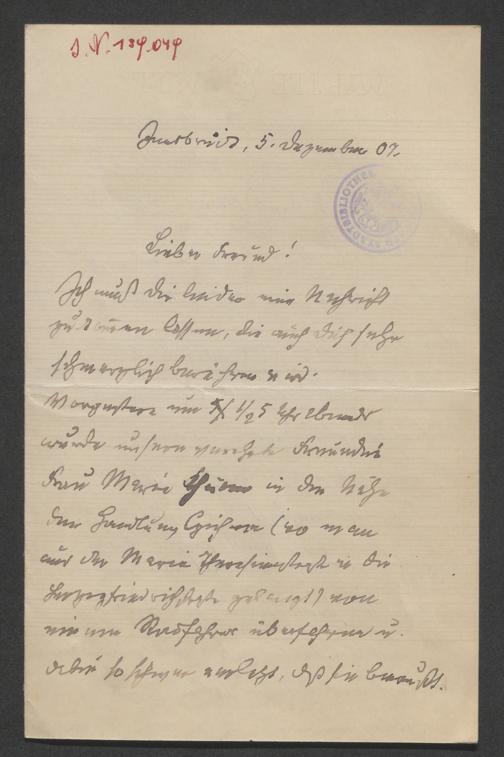 J.N. 139.049
Innsbruck, 5. Dezember 07.
STADTBIBLIOTHEK
Lieber Freund!
Ich muß Dir leider eine Nachricht
zukommen lassen, die auch Dich sehr
schmerzlich berühren wird.
Vorgestern um 1/2 5 Uhr Abends
wurde unsere verehrte Freundin
Frau Marie in der Nähe
der Handlung (wo man
aus der Maria Theresienstraße in die
Herzogfriedrichstraße gelangt) von
einem Radfahrer überfahren u.
dabei so schwer verletzt, daß sie bewußt